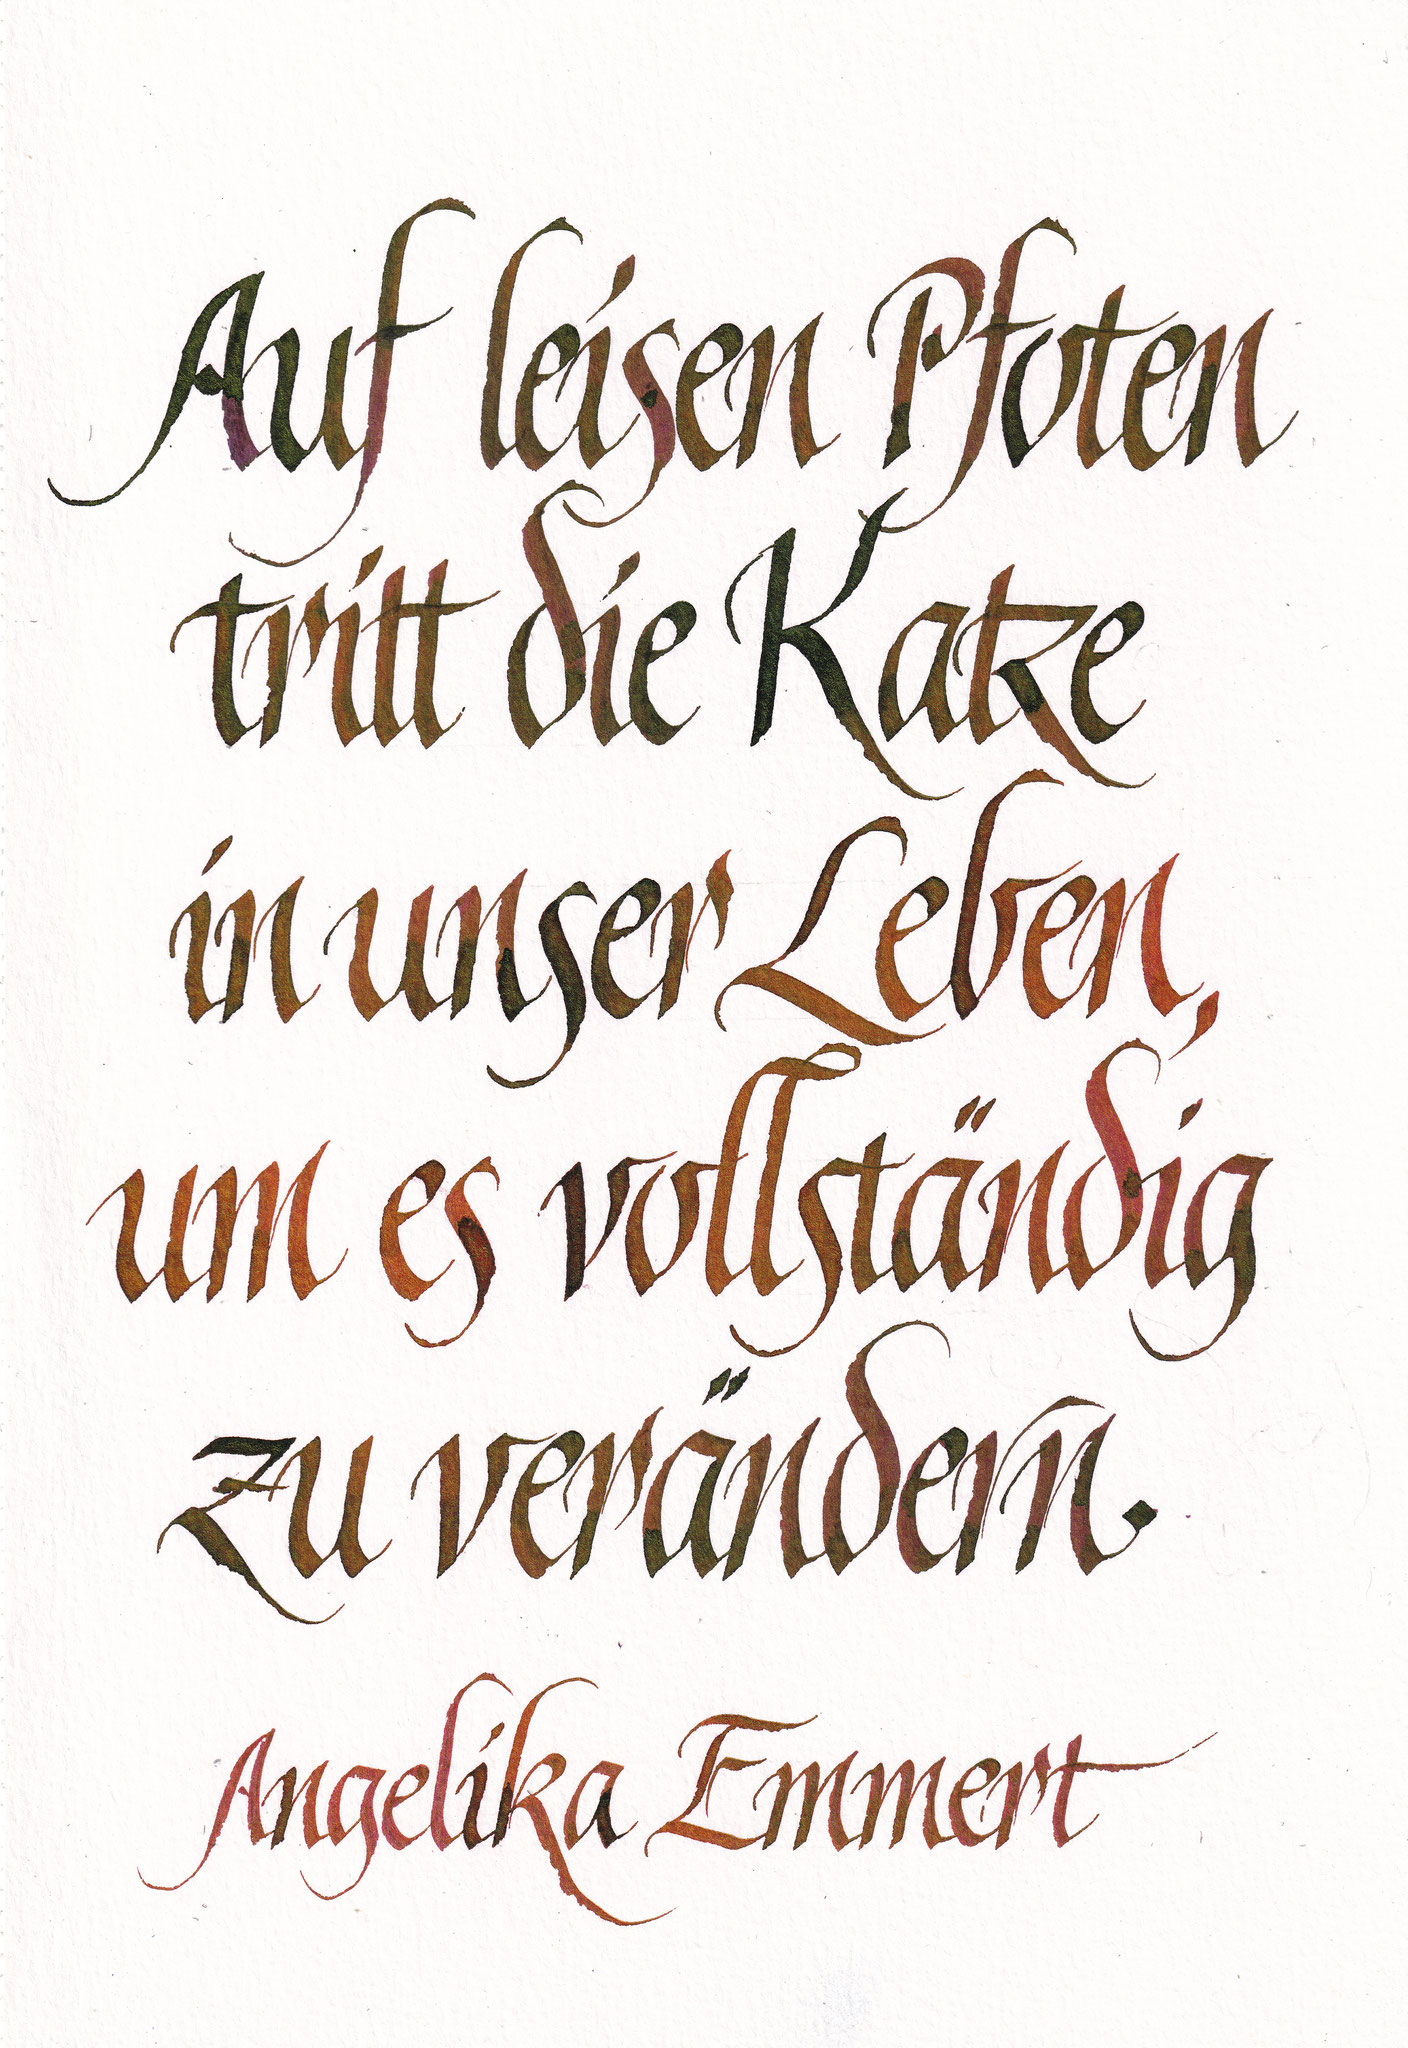 Auf leisen Pfoten
tritt die Katze
in unser Leben,
um es vollständig
zu verändern.
Angelika Emmert